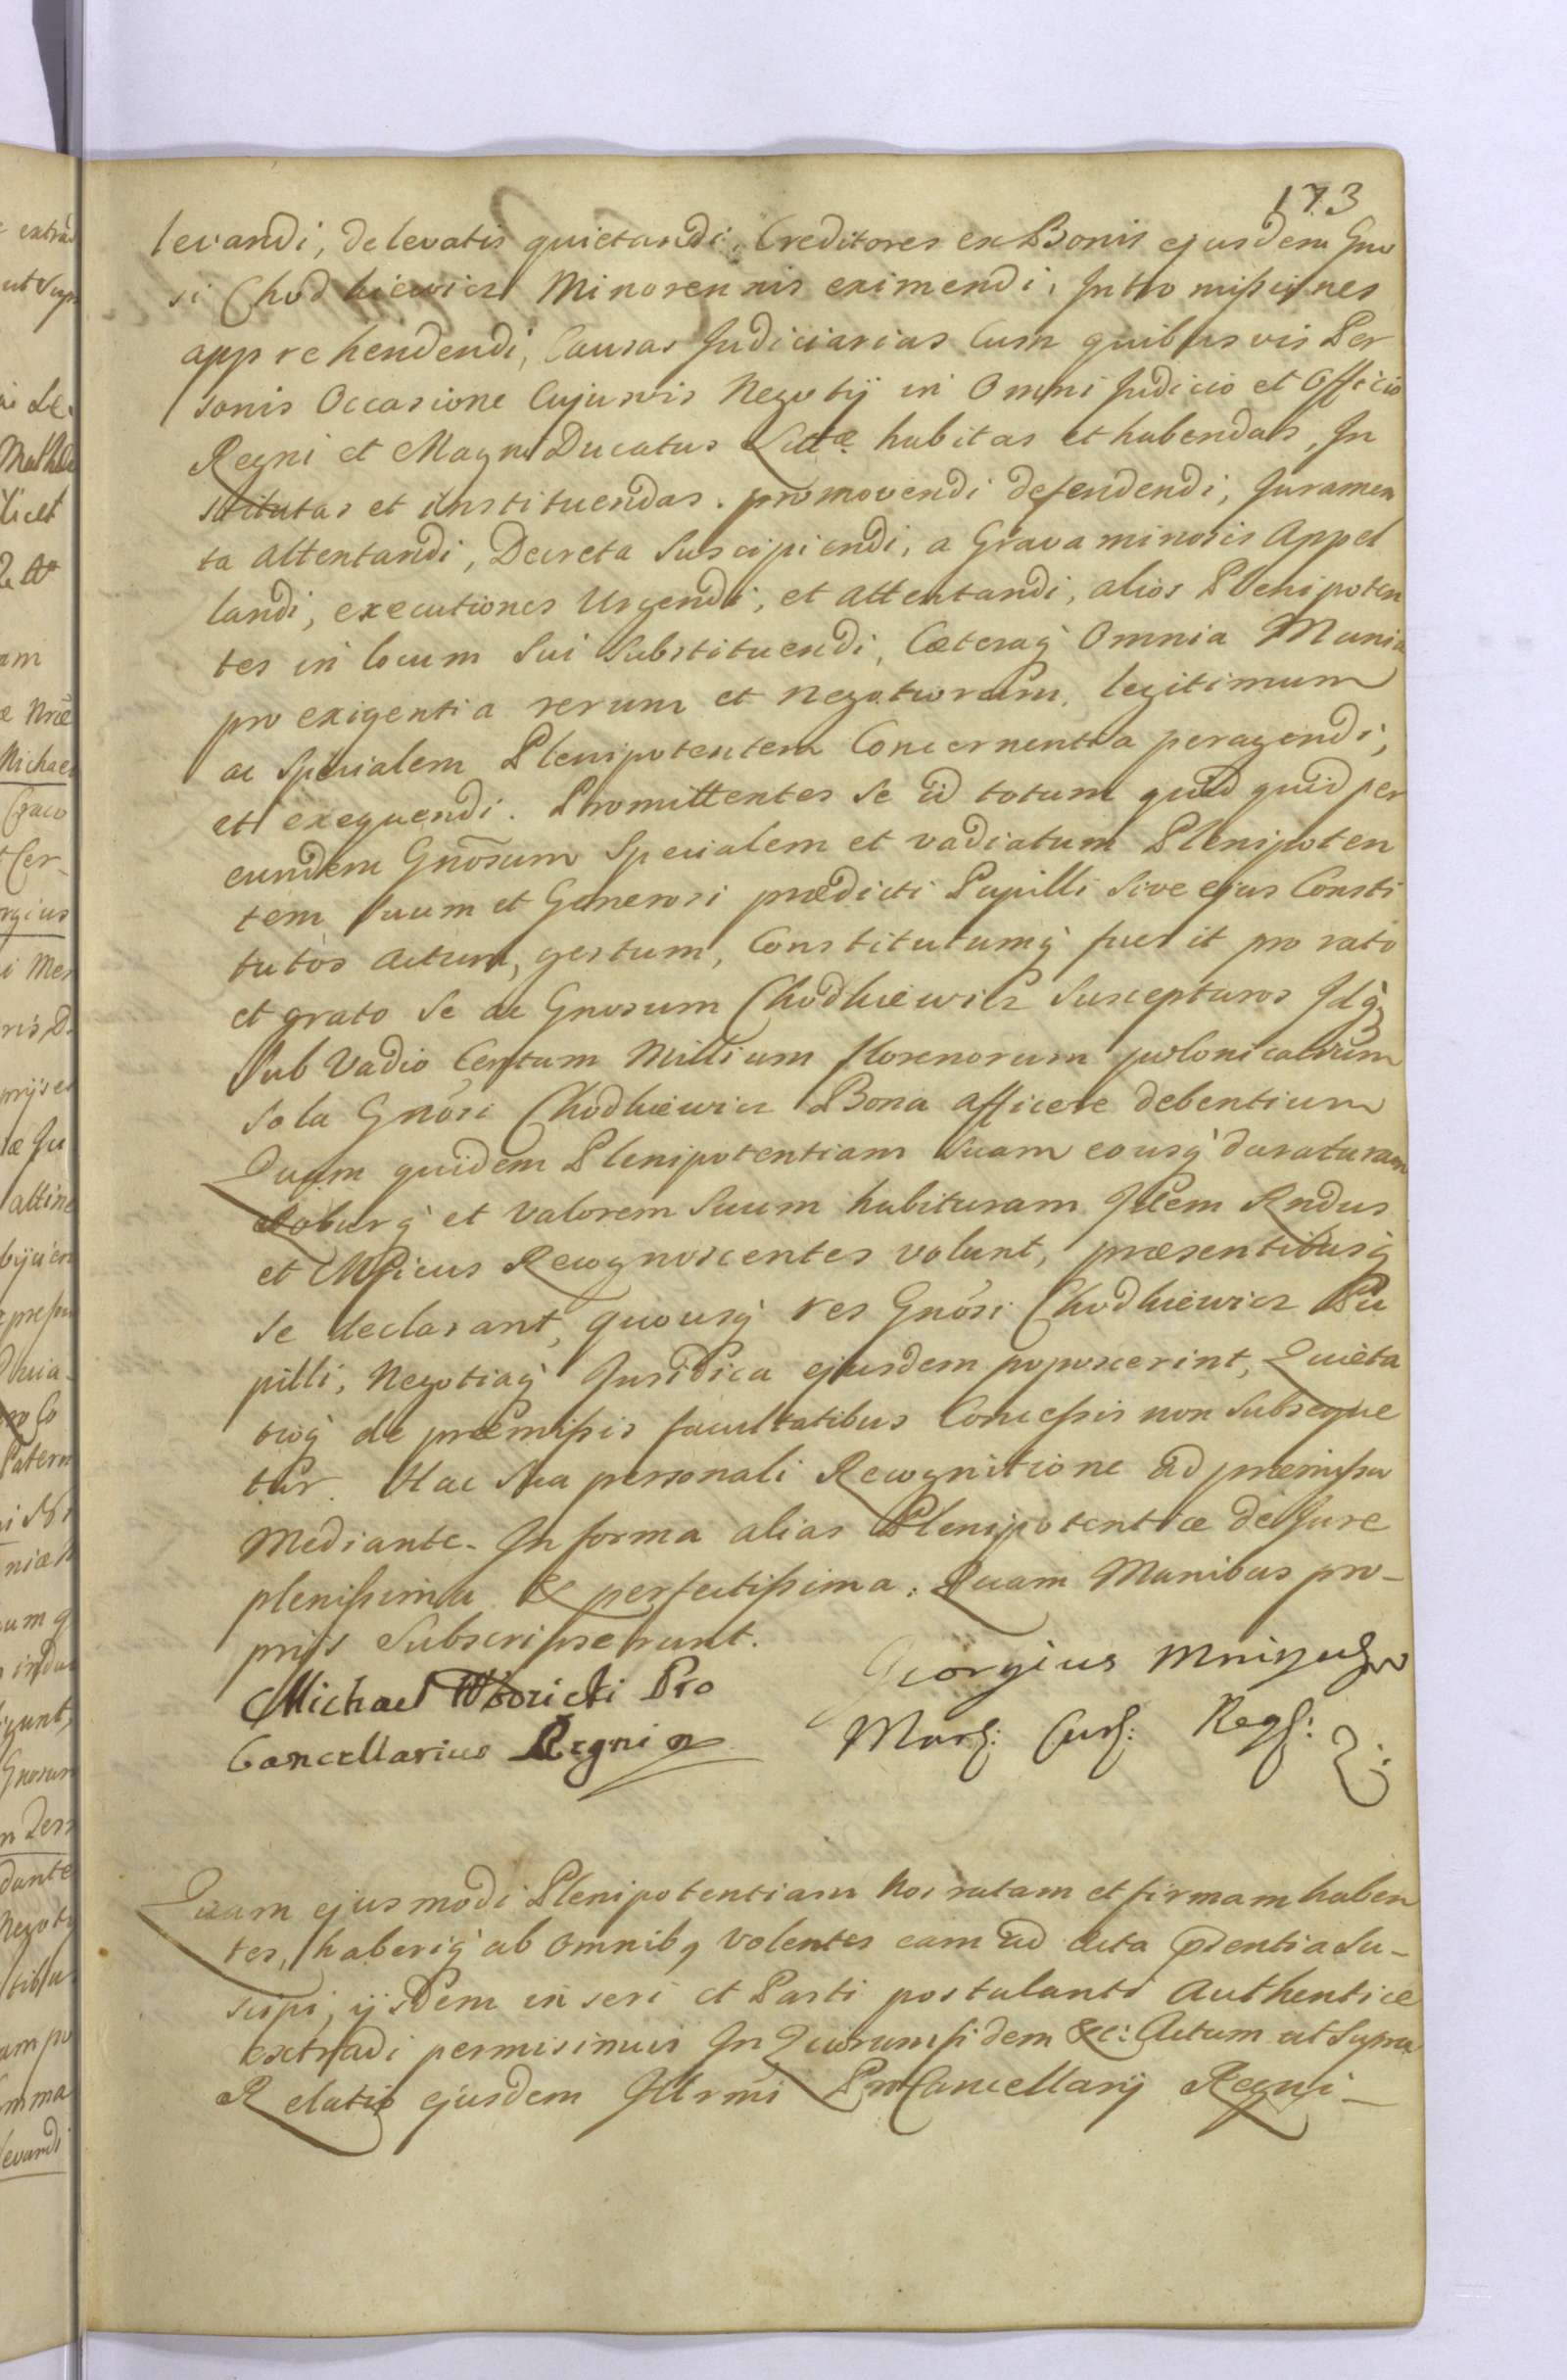 173
levandi, de levatis quietandi, Creditores ex Bonis ejusdem Gno
si Chodkiewicz Minorennis eximendi, Intromissiones
apprehendendi, Causas Judiciarias Cum quibusvis Per
sonis Occasione Cujusvis Negotij in Omni Judicio et Officio
Regni et Magni Ducatus Littæ habitas et habendas, In
stitutas et instituendas. promovendi defendendi, Juramen
ta attentandi, Decreta Suscipiendi, a Gravaminosis Appel
landi, executiones Urgendi, et attentandi, alios Plenipoten
tes in locum Sui Substituendi, Cæteraq̀ Omnia Munia
pro exigentia rerum et negotiorum, legitimum
ac Specialem Plenipotentem Concernentia peragendi,
et exequendi. Promittentes Se id totum quid quid per
eundem Gnõsum Specialem et vadiatum Plenipoten
tem Suum et Generosi prædicti Pupilli Sive ejus Consti
tutos actum, gestum, Constitutumq̀ fuerit pro rato
et grato Se ac Gnosum Chodkiewicz Suscepturos Idq̀
Sub Vadio Centum Millium florenorum polonicalium
Sola Gnõsi Chodkiewicz Bona afficere debentium
Quam quidem Plenipotentiam Suam eousq̀ duraturam
Roburq̀ et valorem Suum habituram Idem Rndus
et Mficus Recognoscentes volunt, præsentibusq̀
Se declarant, quousq̀ res Gnõsi Chodkiewicz Pu
pilli, Negotiaq̀ Juridica ejusdem poposcerint, Quieta
tioq̀ de præmissis facultatibus Concessis non Subseque
tur. Hac Sua personali Recognitione ad præmissa
Mediante. In forma alias Plenipotentiæ de Jure
plenissima & perfectissima. Quam Manibus pro-
prijs Subscripserunt.
Michael Wodzicki Pro
Cancellarius Regni
Georgius Mniszech
Mars: Curs: Regs:
Quam ejusmodi Plenipotentiam Nos ratam et firmam haben
tes, haberiq̀ ab omnibq volentes eam ad acta pdentia Su-
scipi, ijsdem inseri et Parti postulanti Authentice
extradi permisimus In Quorum fidem &c: Actum ut Supra
Relatio ejusdem Illrmi ProCancellarij Regni -